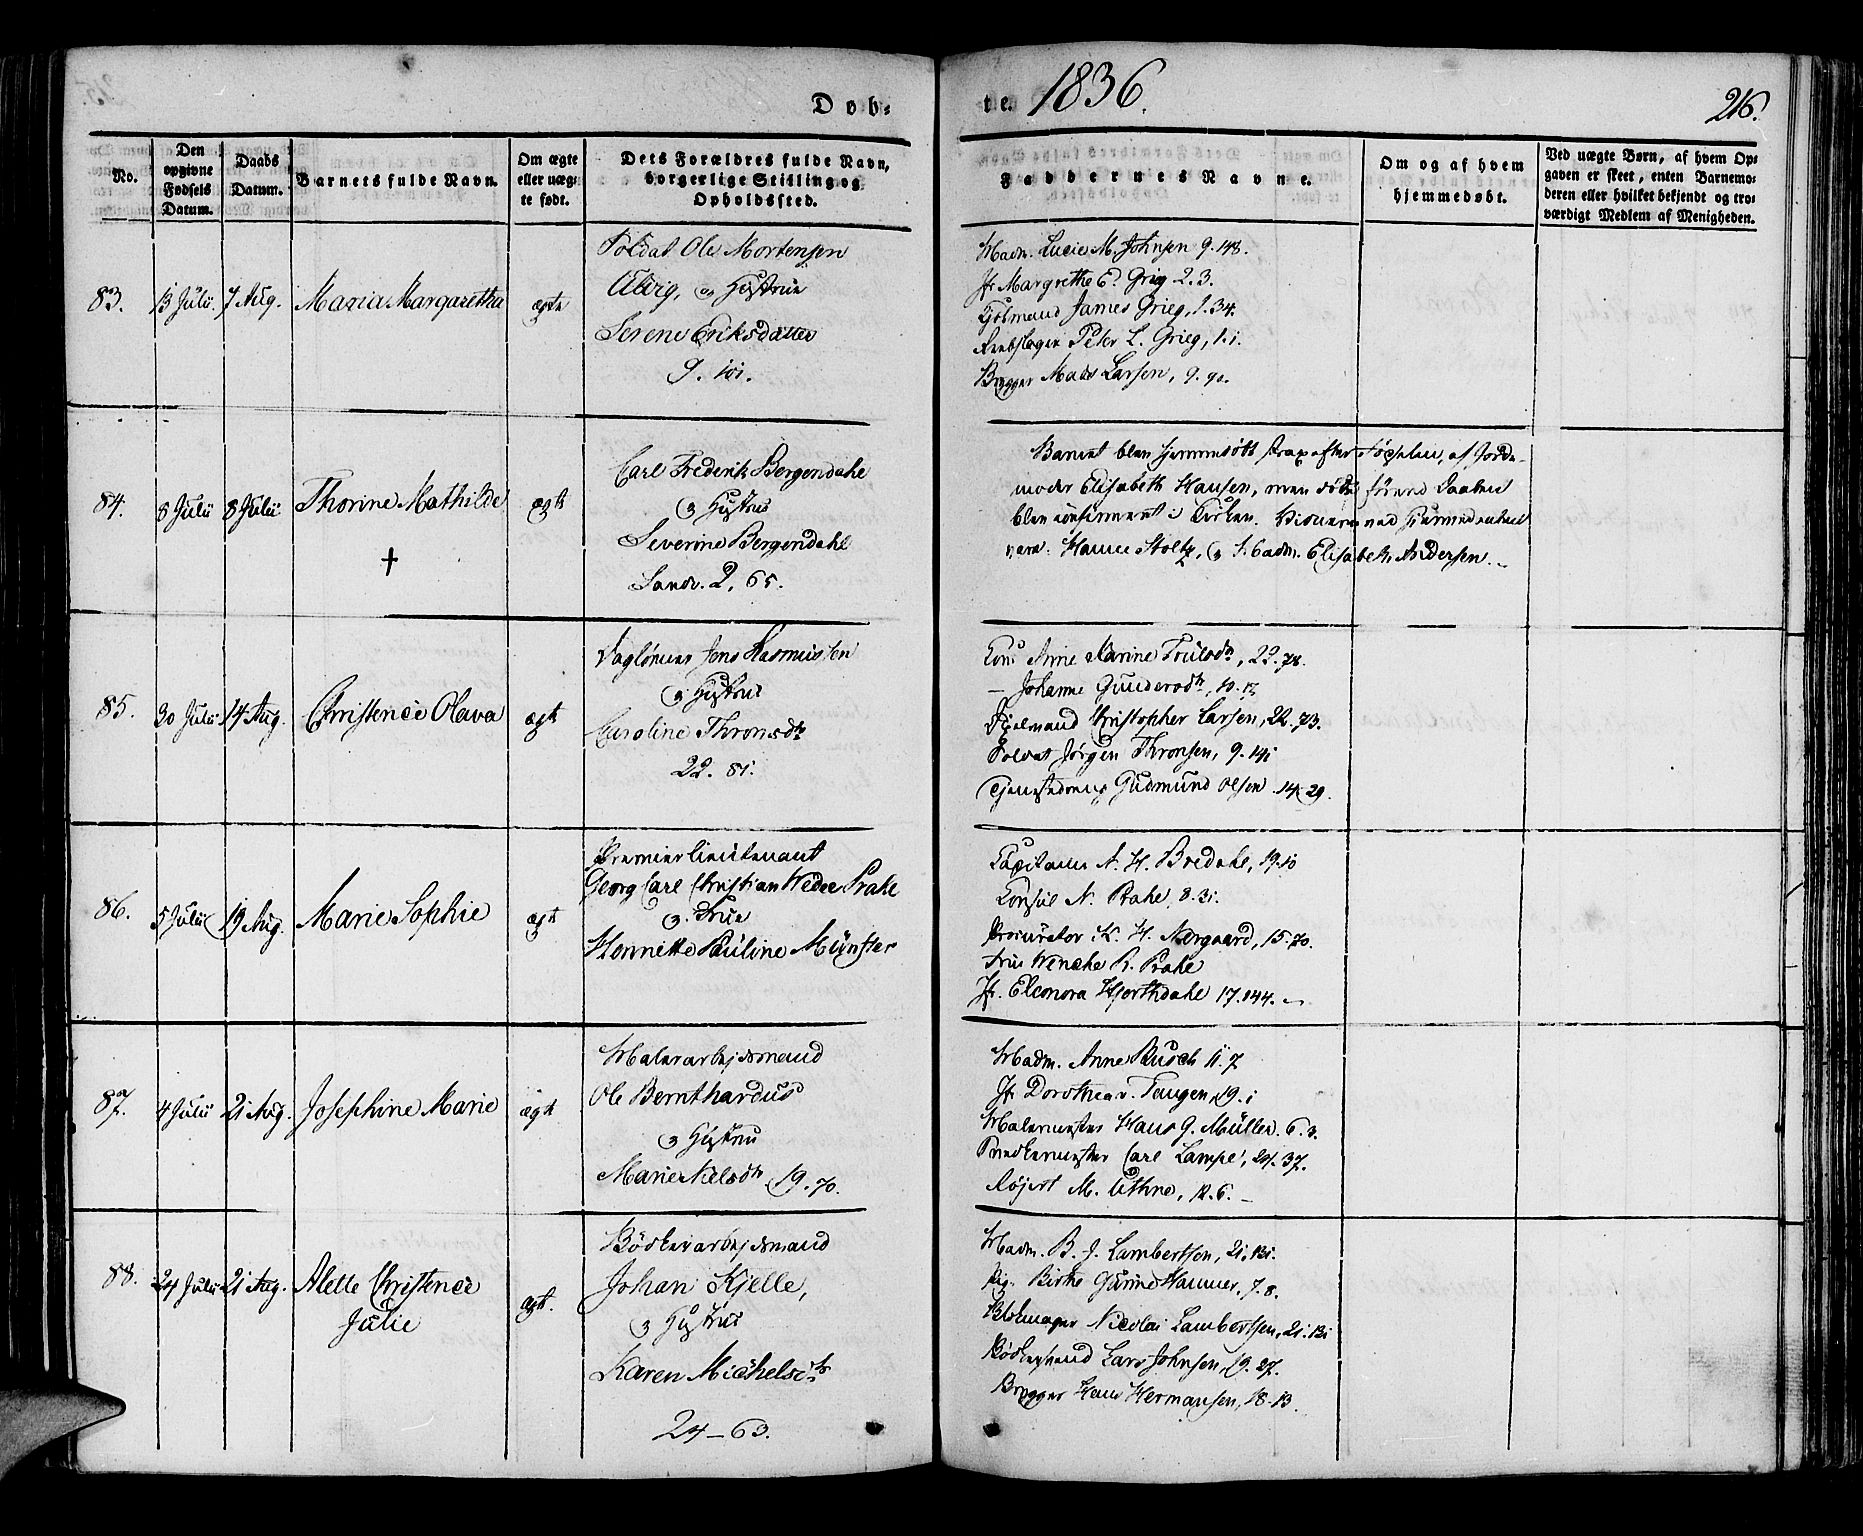 Døb-
te. 1836.
216.
No.
Den opgivne Fødsels Datum.
Daabs Datum.
Barnets fulde Navn.
Om ægte eller uæg- te født.
Dets Forældres fulde Navn, borgerlige Stilling og Opholdssted.
Faddernes Navne.
Om og af hvem hjemmedøbt.
Ved uægte Børn, af hvem Op- gaven er skeet, enten Barnemo- deren eller hvilket bekjendt og tro- værdigt Medlem af Menigheden.
83. 13 Julii. 7 Aug. Maria Margaretha ægte
Soldat Ole Mortensen
og Hustrue
Serene Eriksdatter
9. 101.
Madm. Lucie M. Johnsen 9.148.
Jfr Margrethe E. Grig 2.3.
Kjøbmand James Grieg, 1.34.
Rebslager Peter L. Grieg, 1.1.
Brygger Mads Larsen, 9.90.
84. 8 Julii 8 Julii Thorine Mathilde ægte
†
Carl Frederik Bergendahl
og Hustrue
Severine Bergendahl
Sandv. 2, 65.
Barnet blev hjemmedøbt strax efter Fødselen, af Jorde-
moder Elisabeth Hansen, men døde førend Daaben
blev confirmeret i Kirken. Vidner ved Hjemmedaaben
vare: Hanne Stoltz, og Madm. Elisabeth Andersen.
85. 30 Julii 14 Aug. Christence Olava ægte
Daglønner Jens Rasmussen
og Hustrue
Caroline Thronsdtr
22. 81.
Kone Anne Karine Trulsdtr, 22.78.
— Johanne Gundersdtr, 10.12
Christopher Larsen, 22.73.
Soldat Jørgen Thronsen, 9.141
Tjenestedreng Gudmund Olsen 14.29.
86. 5 Julii 19 Aug. Marie Sophie ægt
Premierlieutenant
Georg Carl Christian Wedel Prahl
og Frue
Honnette Pauline Münster
Capitain N. H. Bredahl, 19.10
Consul N. Prahl, 8.31.
Procurator K. H. Nørgaard, 15.70.
Frue Wenche R. Prahl
Jfr. Eleonora Hjorthdahl 17.144.
87. 4 Julii 21 Aug. Josephine Marie ægte
Malerarbejdsmand
Ole Bernthardus
og Hustrue
Marie Nielsdtr 19.70.
Madm. Anne Rusch 11.7
Jfr Dorothea v. Tangen, 19.1
Malermester Hans G. Müller. 6.3.
Snedkermester Carl Lampe, 24.37.
M. Uthne, 12.6. —
88. 24 Julii 21 Aug. Alette Christence
Julie
ægt.
Bødkerarbejdsmand
Johan Kjelle,
og Hustrue
Karen Michelsdtr
24 – 63.
Madm. B. J. Lambertsen, 21.131.
Pig. Birthe Gurine Hammer, 7.8.
Blokmager Nicolai Lambertsen, 21.131
Bødkersvend Lars Johnsen, 19.27.
Brygger Hans Hermansen, 18.13.